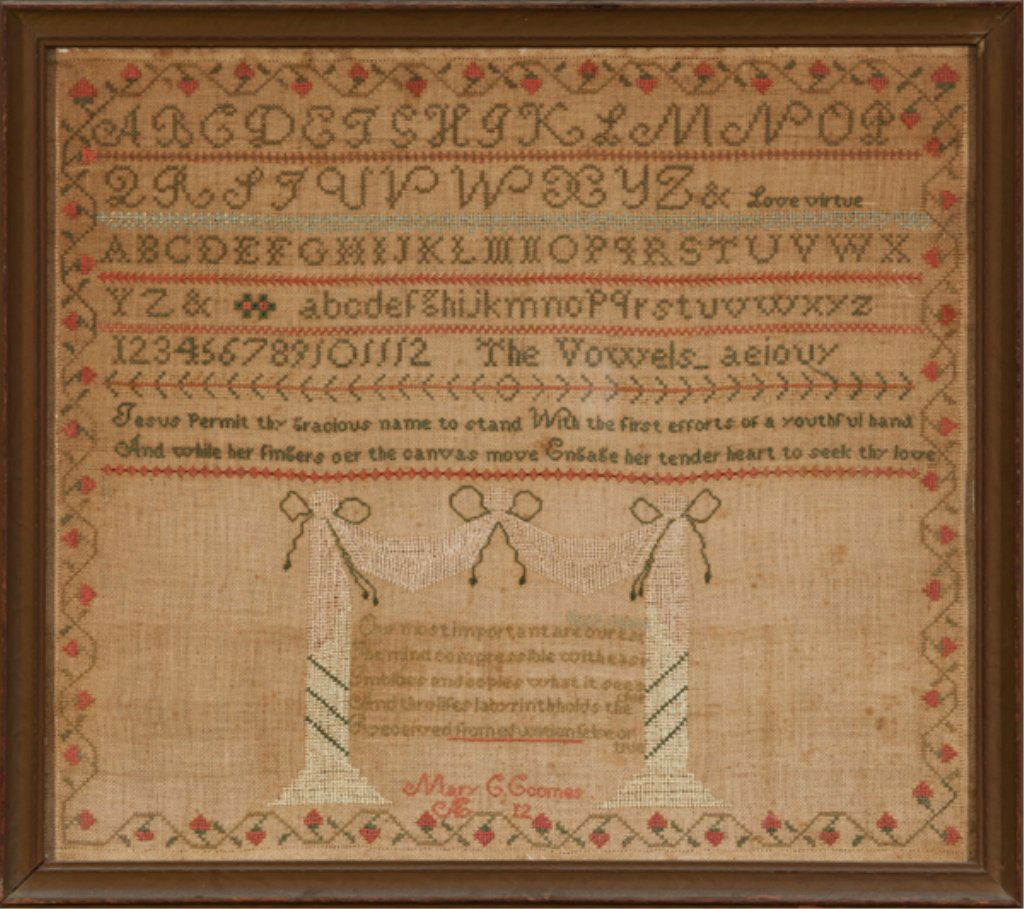 A B C D E F G H I K L M N O P
Q R S T U V W X Y Z & Love virtue
A B C D E F G H I J K L M N O P q R S T U V W X
Y Z & a b c d e f g h i j k m n o p q r s t u v w x y z
1 2 3 4 5 6 7 8 9 10 11 12 The Vowels_ a e i o u y
Jesus Permit thy Gracious name to stand With the first efforts of a youthful hand
And while her fingers oer the canvas move Engage her tender heart to seek thy love
Our most important are our
The mind compressible with ease
Imbibes and copies what it sees
And thro lifes labyrinth holds the
clue
Received from education
true
Mary C. Coomes
Æ 12